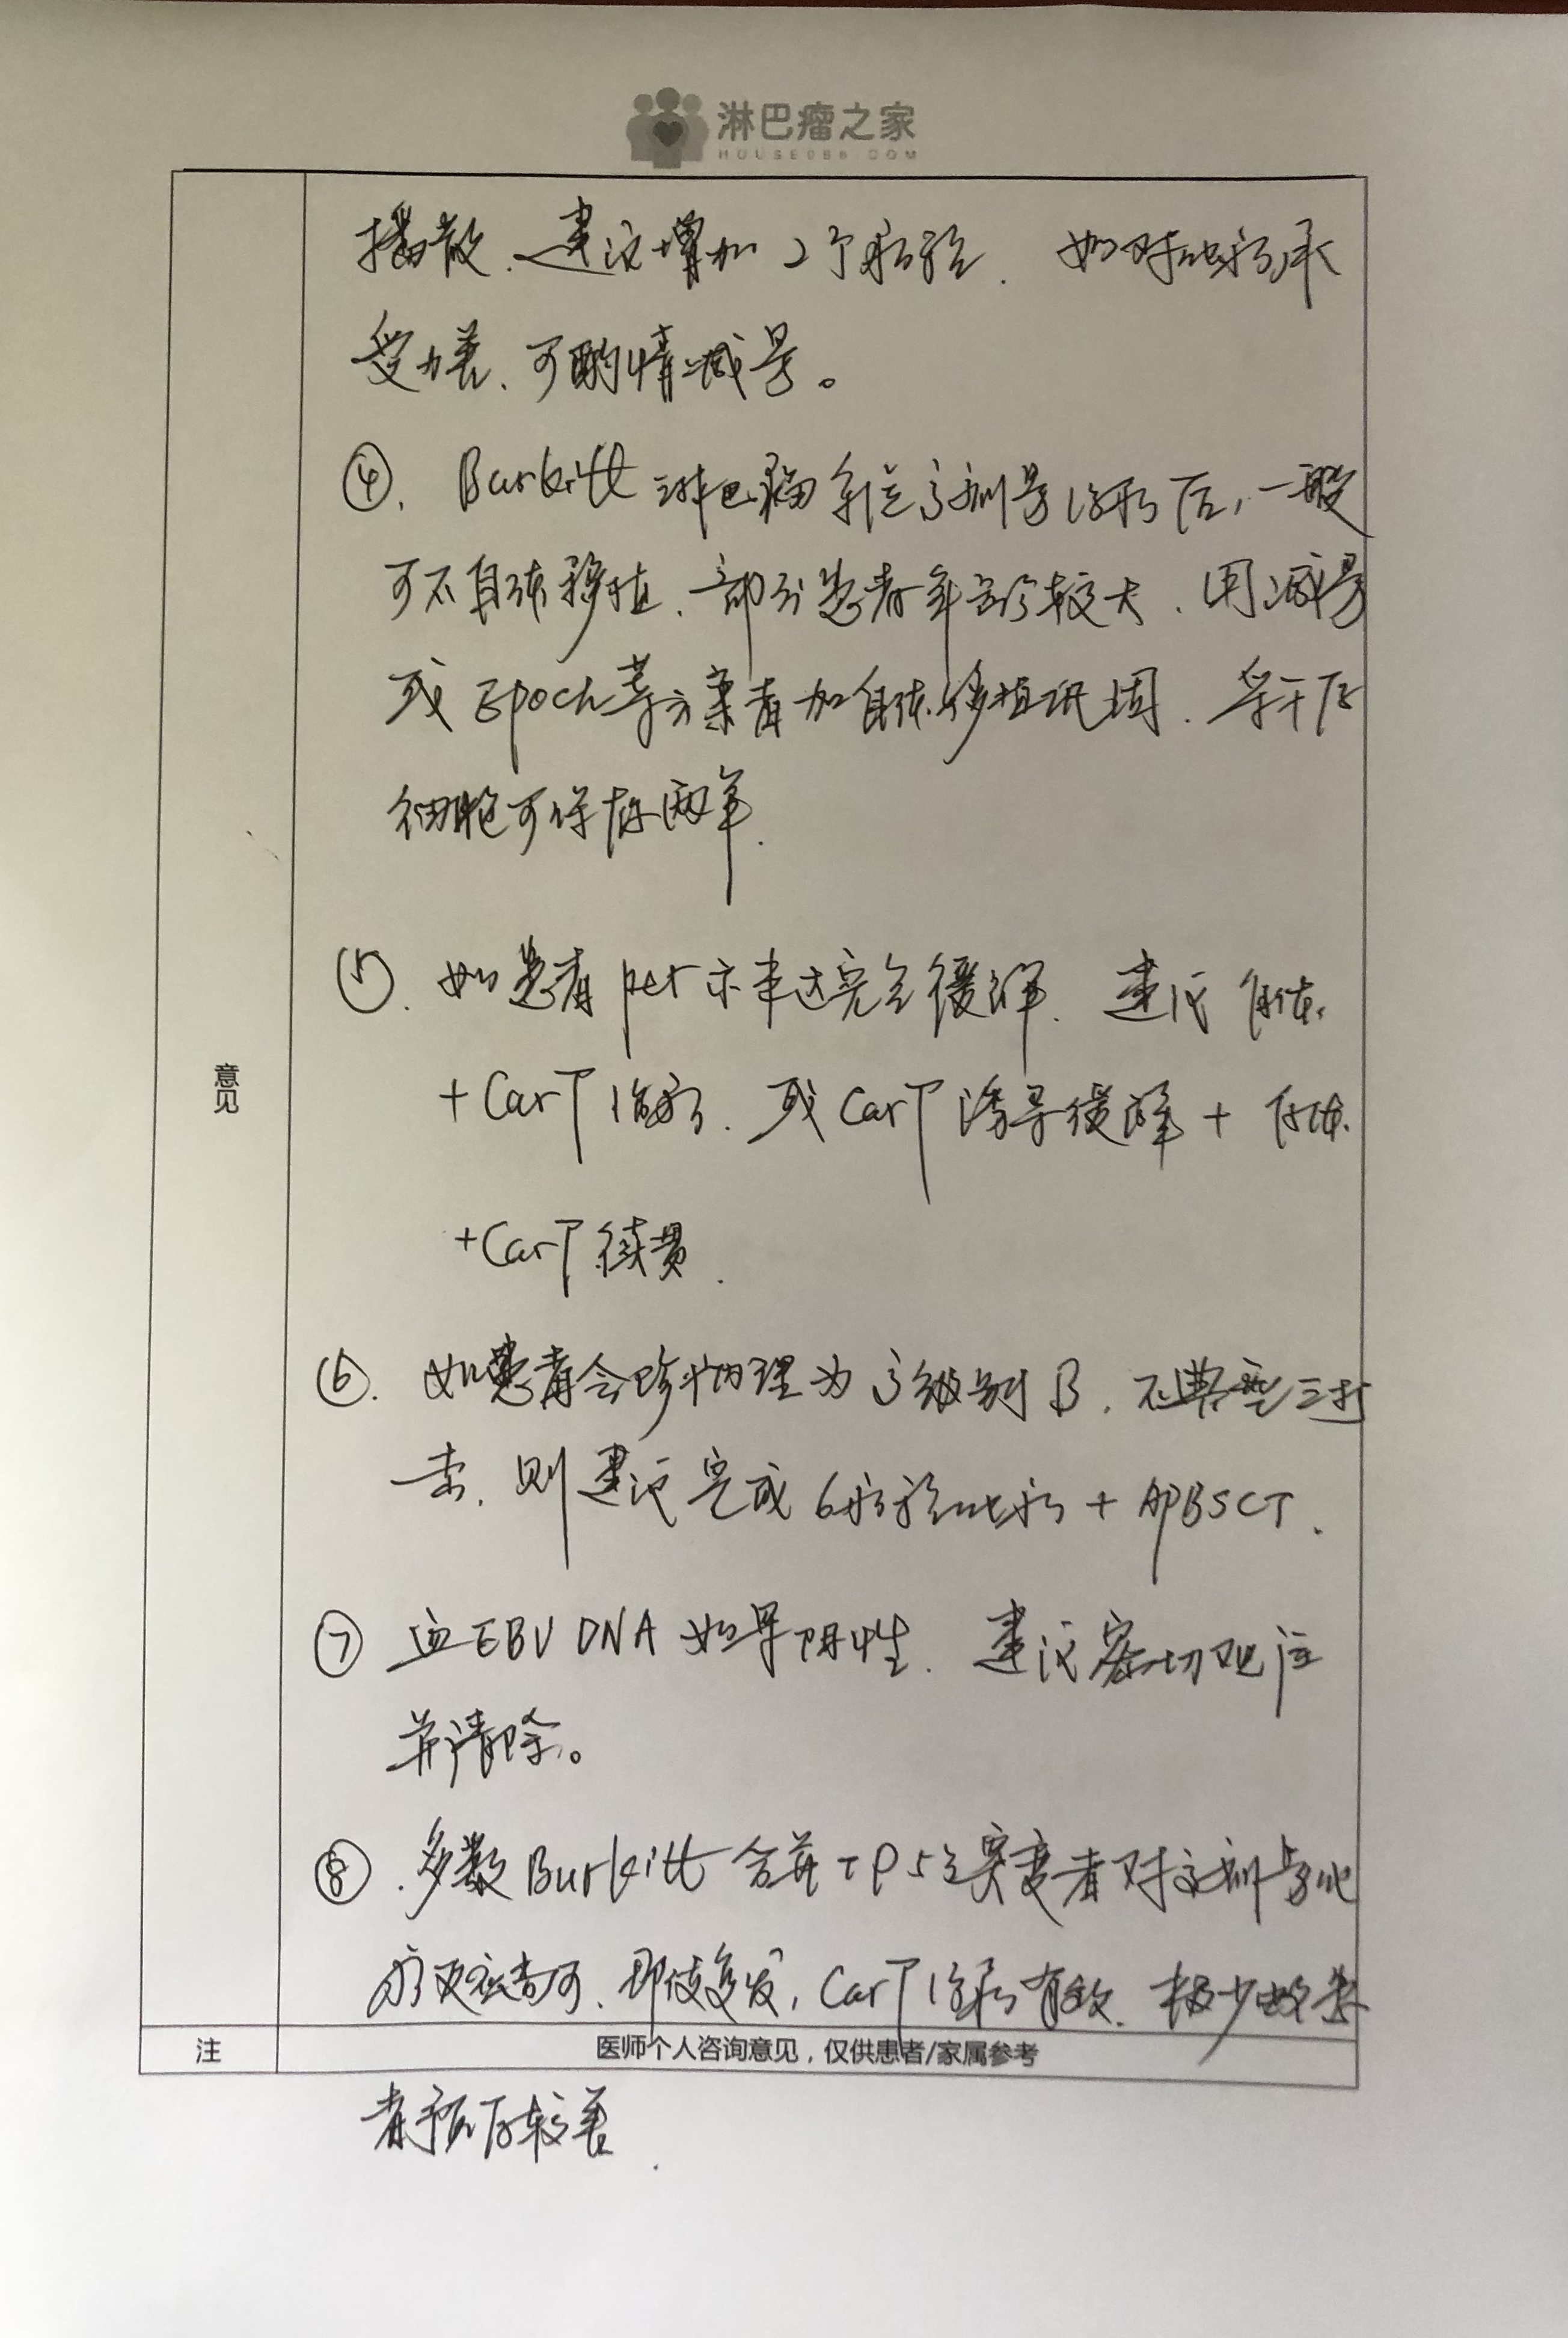 淋巴瘤之家
HOUSE086.COM
播散、建议增加2个疗程. 如对化疗承
受力差、可酌情减量。
④. Burkitt 淋巴瘤 剂量治疗后,一般
可不自体移植、部分患者年龄较大、用减量
或 Epoch等方案者加自体移植巩固. 等干
细胞可保存两年.
⑤. 如患者 pet示未达完全缓解. 建议 自体
+CarT治疗. 或 CarT 诱导缓解 + 自体
+CarT续贯.
意见
⑥. 如患者会诊病理为高级别B. 不典型三打
击. 则建议完成6疗程化疗 + APBSCT.
⑦ 血EBV DNA 如果阳性. 建议密切观注
并清除。
⑧. 多数Burkitt 合并TP53突变者对大剂量化
疗反应尚可、即使复发, CarT治疗有效. 极少数患
注 医师个人咨询意见,仅供患者/家属参考
者预后较差.